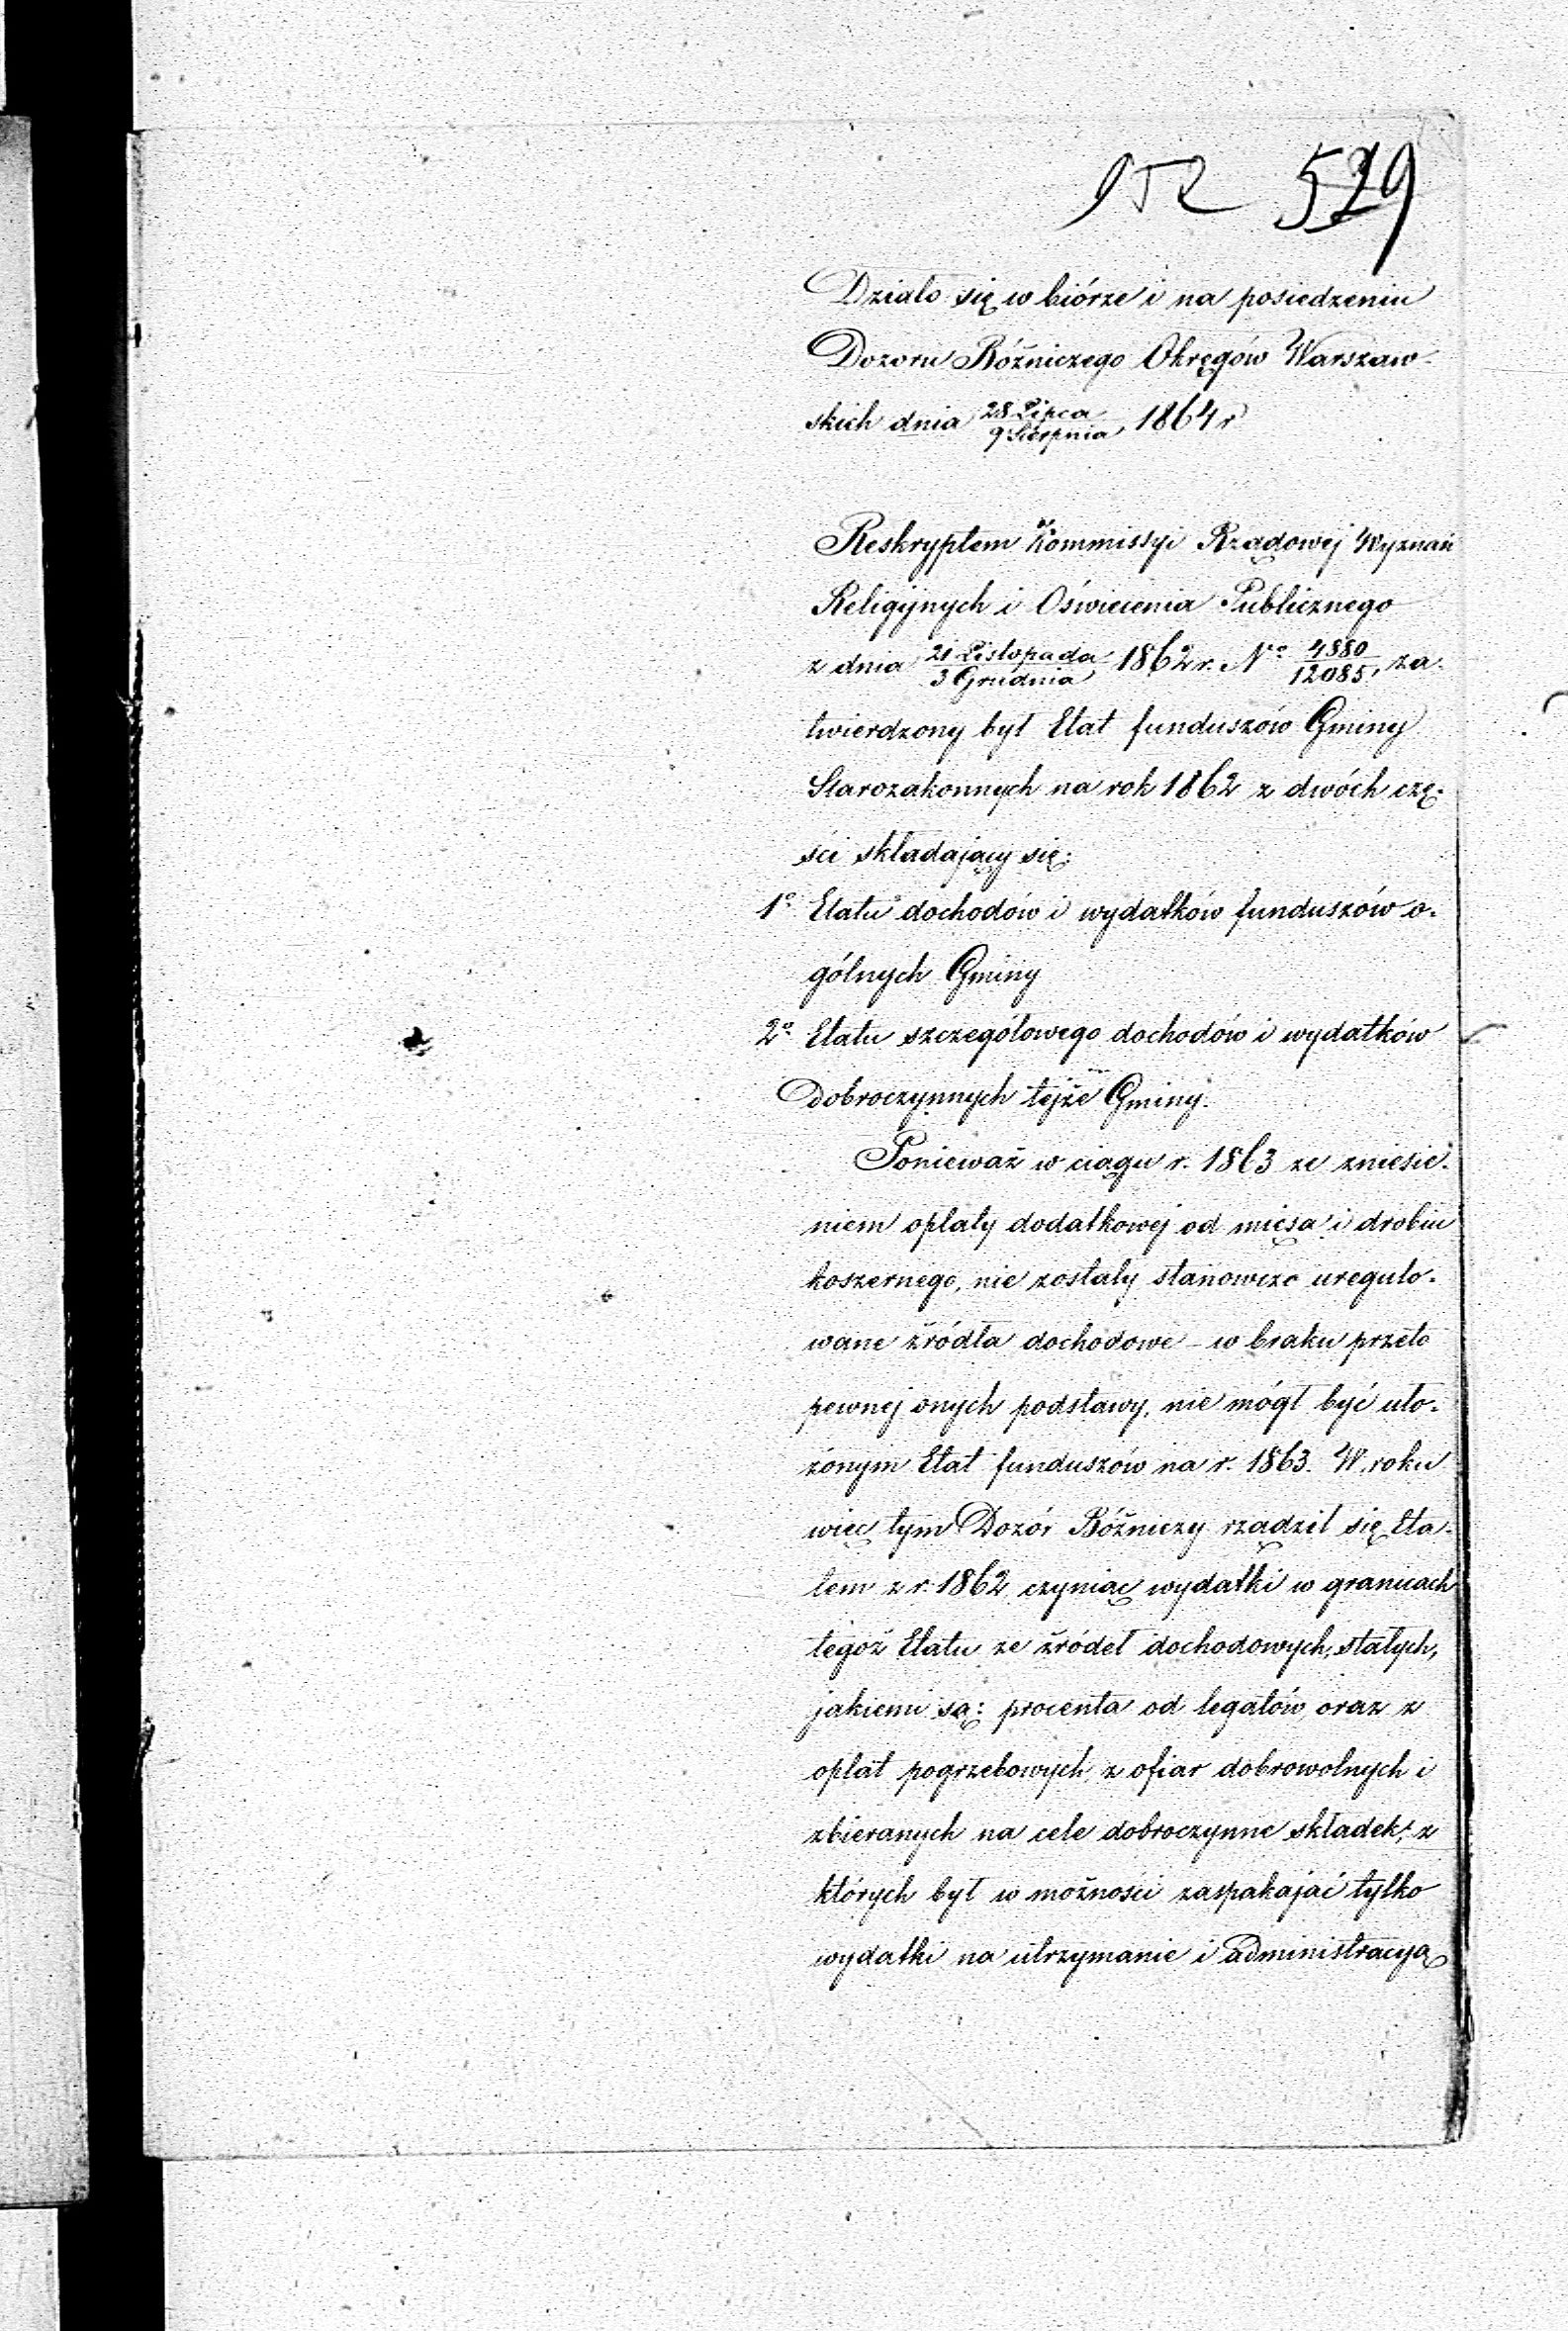 152 529
Działo się w biórze i na posiedzeniu
Dozoru Bóżniczego Okręgów Warszaw-
skich dnia 28 Lipca / 9 Sierpnia 1864 r
Reskryptem Kommissyi Rządowej Wyznań
Religijnych i Oświecenia Publicznego
z dnia 21 Listopada / 3 Grudnia 1862 r. No 4880 / 12085, za-
twierdzony był Etat funduszów Gminy
Starozakonnych na rok 1862 z dwóch czę-
ści składający się:
1o Etatu dochodów i wydatków funduszów o-
gólnych Gminy
2o Etatu szczegółowego dochodów i wydatków
Dobroczynnych tejże Gminy.
Ponieważ w ciągu r. 1863 ze zniesie-
niem opłaty dodatkowej od mięsa i drobiu
koszernego, nie zostały stanowczo uregulo-
wane źródła dochodowe – w braku przeto
pewnej onych podstawy, nie mógł być uło-
żonym Etat funduszów na r. 1863. W roku
więc tym Dozór Bóżniczy rządził się Eta-
tem z r. 1862 czyniąc wydatki w granicach
tegoż Etatu ze źródeł dochodowych, stałych,
jakiemi są: procenta od legatów oraz z
opłat pogrzebowych z ofiar dobrowolnych i
zbieranych na cele dobroczynne składek, z
których był w możności zaspakajać tylko
wydatki na utrzymanie i administracyą